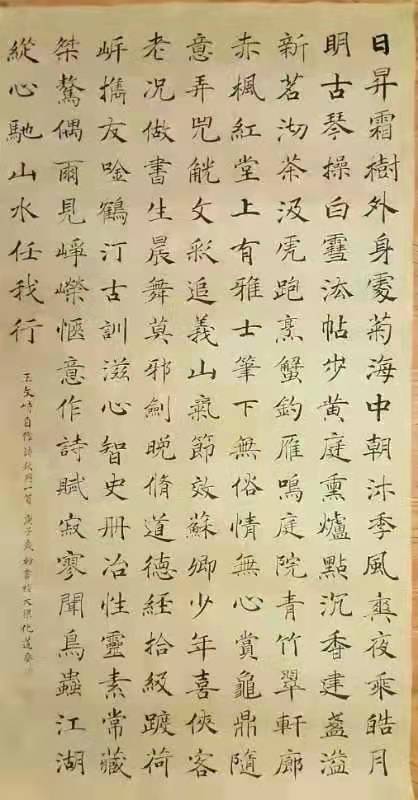 日昇霜樹外身處菊海中朝沐季風爽夜乘皓月
明古琴操白雪法帖步黄庭熏爐點沉香建盞溢
新茗沏茶汲虎跑烹蟹鈎雁鳴庭院青竹翠軒廊
赤楓紅堂上有雅士筆下無俗情無心賞龜鼎隨
意弄兕觥文彩追義山氣節效蘇卿少年喜俠客
老况做書生晨舞莫邪劍晚脩道德經拾級踱荷
岍攜友唫鶴汀古訓滋心智史册冶性靈素常藏
桀驁偶爾見崢嶸愜意作詩賦寂寥聞鳥蟲江湖
縱心馳山水任我行
自作詩 一首 庚子